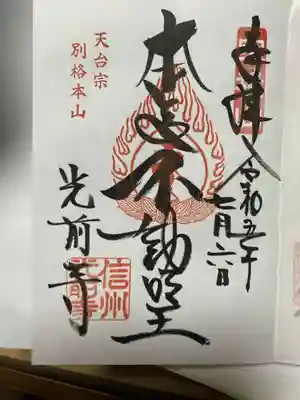 奉拝
令和五年
七月六日
本尊不動明王
天台宗
別格本山
光前寺
信州
光前寺